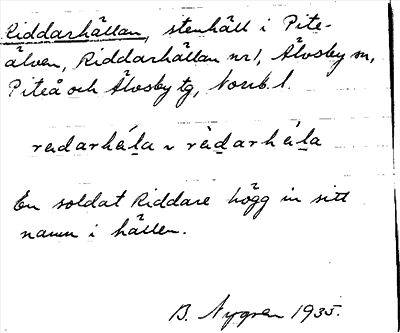 Riddarhällan, stenhäll i Pite-
älven, Riddarhällan nr 1, Älvsby sn,
Piteå och Älvsby tg, Norrb. l.
redarhála ~ rèdarhála
En soldat Riddare högg in sitt
namn i hällen.
B. Nygren 1935.